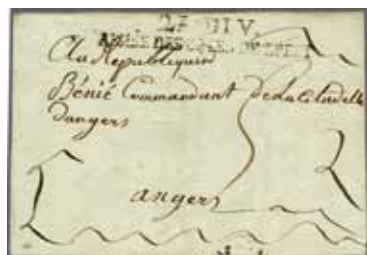 2E DIV.
ARMÉE DES CÔTES DE BREST
Au Républiquin
Bénié Commandant De La Citadelle
dangers
angers